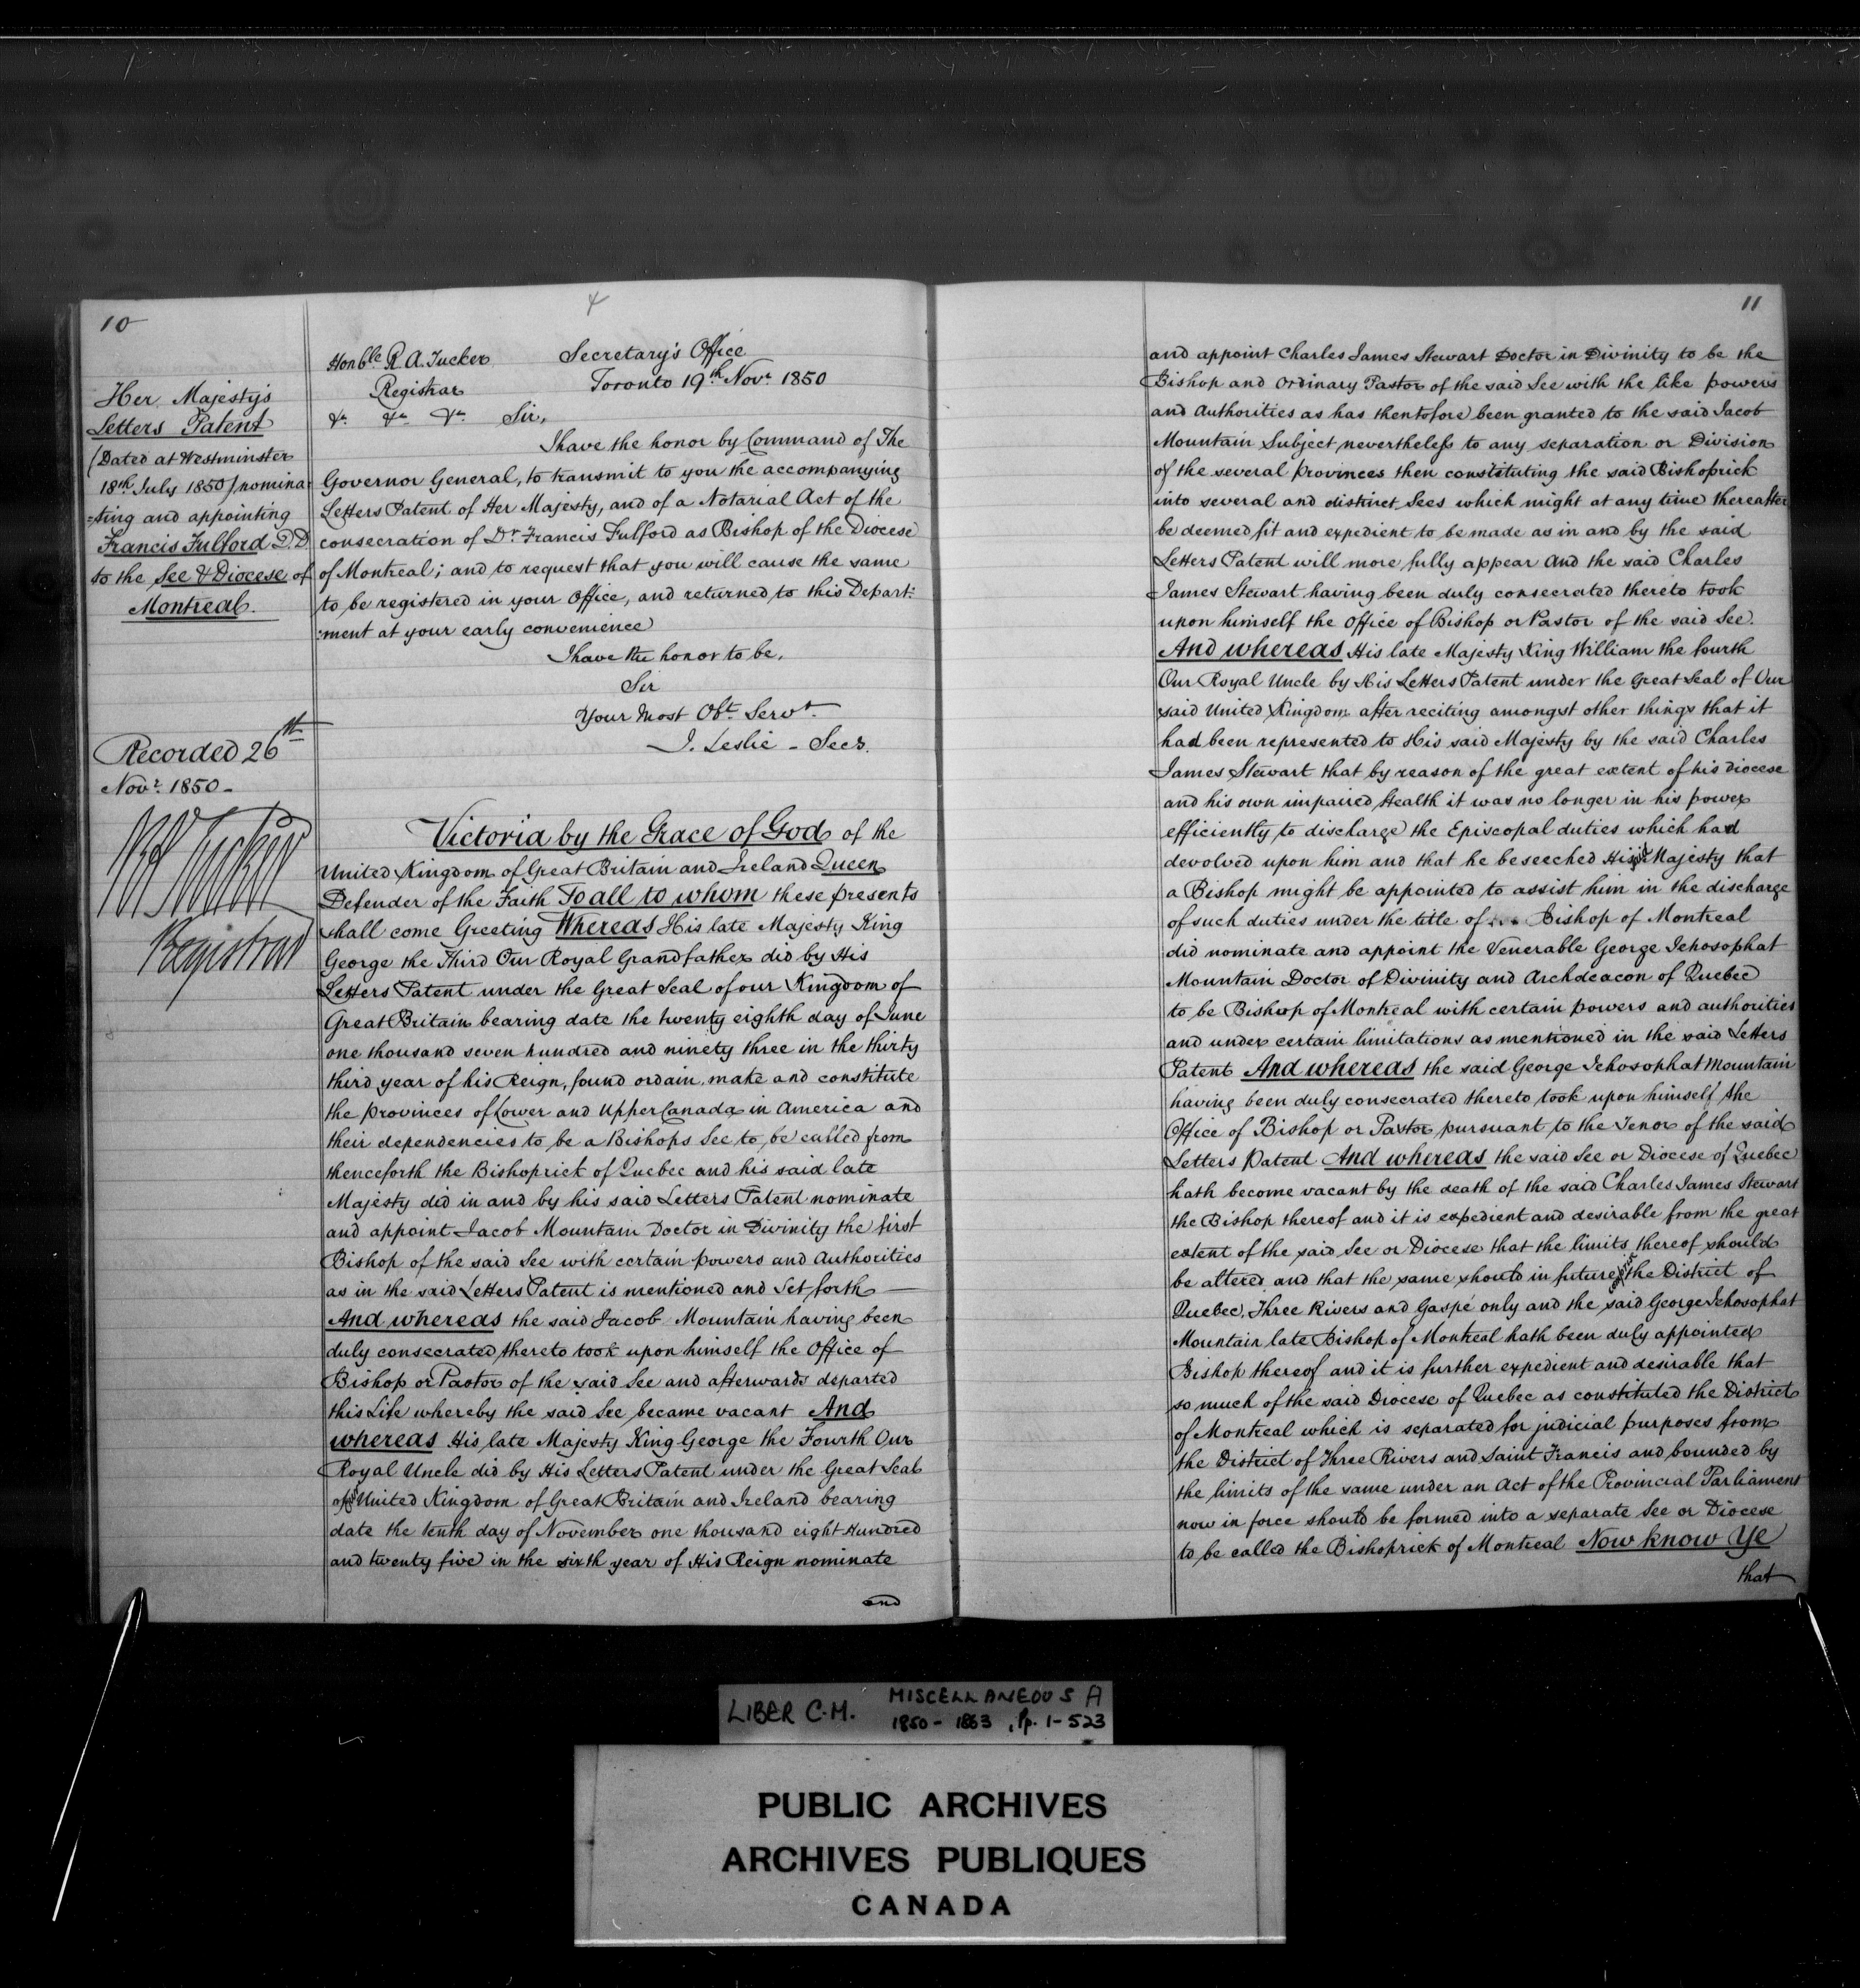 10
Her Majesty's
Letters Patent
(Dated at Westminster
18th July 1850) nomina
=ting and appointing
Francis Fulford D.D.
to the See & Diocese of
Montreal.
Recorded 26th
Novr. 1850 -
RA Tucker
Registrar
Honble R. A. Tucker
Registrar
&c &c &c
Secretary's Office
Toronto 19th Novr. 1850
Sir,
I have the honor by Command of The
Governor General, to transmit to you the accompanying
Letters Patent of Her Majesty, and of a Notarial Act of the
consecration of Dr. Francis Fulford as Bishop of the Diocese
of Montreal; and to request that you will cause the same
to be registered in your Office, and returned to this Depart:
:ment at your early convenience
I have the honor to be,
Sir
Your Most Obt. Servt.
J. Leslie - Secy.
Victoria by the Grace of God of the
United Kingdom of Great Britain and Ireland Queen
Defender of the Faith To all to whom these presents
shall come Greeting Whereas His late Majesty King
George the Third Our Royal Grandfather did by His
Letters Patent under the Great Seal of our Kingdom of
Great Britain bearing date the twenty eighth day of June
one thousand seven hundred and ninety three in the thirty
third year of his Reign, found ordain make and constitute
the provinces of Lower and Upper Canada in America and
their dependencies to be a Bishops See to be called from
thenceforth the Bishoprick of Quebec and his said late
Majesty did in and by his said Letters Patent nominate
and appoint Jacob Mountain Doctor in Divinity the first
Bishop of the said See with certain powers and Authorities
as in the said Letters Patent is mentioned and Set forth —
And whereas the said Jacob Mountain having been
duly consecrated thereto took upon himself the Office of
Bishop or Pastor of the said See and afterwards departed
this Life whereby the said See became vacant And
whereas His late Majesty King George the Fourth Our
Royal Uncle did by His Letters Patent under the Great Seal
of our United Kingdom of Great Britain and Ireland bearing
date the tenth day of November one thousand eight Hundred
and twenty five in the sixth year of His Reign nominate
and
11
and appoint Charles James Stewart Doctor in Divinity to be the
Bishop and Ordinary Pastor of the said See with the like powers
and Authorities as has thentofore been granted to the said Jacob
Mountain Subject nevertheless to any separation or Division
of the several provinces then constituting the said Bishoprick
into several and distinct Sees which might at any time thereafter
be deemed fit and expedient to be made as in and by the said
Letters Patent will more fully appear And the said Charles
James Stewart having been duly consecrated thereto took
upon himself the Office of Bishop or Pastor of the said See.
And whereas His late Majesty King William the fourth
Our Royal Uncle by His Letters Patent under the Great Seal of Our
said United Kingdom after reciting amongst other things that it
had been represented to His said Majesty by the said Charles
James Stewart that by reason of the great extent of his Diocese
and his own impaired Health it was no longer in his power
efficiently to discharge the Episcopal duties which had
devolved upon him and that he beseeched His said Majesty that
a Bishop might be appointed to assist him in the discharge
of such duties under the title of Bishop of Montreal
did nominate and appoint the Venerable George Jehosophat
Mountain Doctor of Divinity and Archdeacon of Quebec
to be Bishop of Montreal with certain powers and authorities
and under certain limitations as mentioned in the said Letters
Patent And whereas the said George Jehosophat Mountain
having been duly consecrated thereto took upon himself the
Office of Bishop or Pastor pursuant to the Tenor of the said
Letters Patent And whereas the said See or Diocese of Quebec
hath become vacant by the death of the said Charles James Stewart
the Bishop thereof and it is expedient and desirable from the great
extent of the said See or Diocese that the limits thereof should
be altered and that the same should in future the District of
Quebec, Three Rivers and Gaspé only and the said George Jehosophat
Mountain late Bishop of Montreal hath been duly appointed
Bishop thereof and it is further expedient and desirable that
so much of the said Diocese of Quebec as constituted the District
of Montreal which is separated for judicial purposes from
the District of Three Rivers and Saint Francis and bounded by
the limits of the same under an Act of the Provincial Parliament
now in force should be formed into a separate See or Diocese
to be called the Bishoprick of Montreal Now know Ye
that
LIBER C.M. MISCELLANEOUS A
1850 - 1863, Pp. 1-523
PUBLIC ARCHIVES
ARCHIVES PUBLIQUES
CANADA